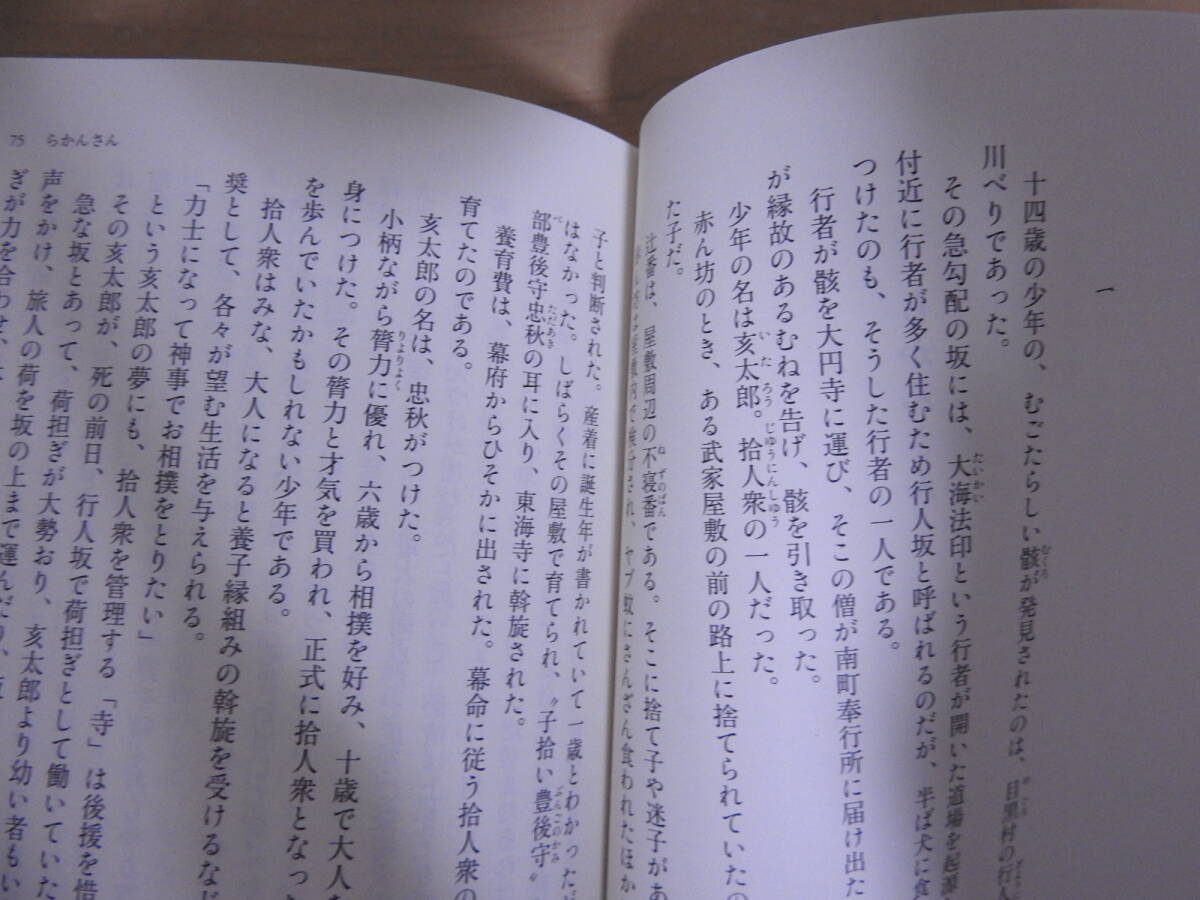 一
十四歳の少年の、むごたらしい骸が発見されたのは、目黒村の行人
川べりであった。
その急勾配の坂には、大海法印という行者が開いた道場を起源
付近に行者が多く住むため行人坂と呼ばれるのだが、半ば犬に食
つけたのも、そうした行者の一人である。
行者が骸を大円寺に運び、そこの僧が南町奉行所に届け出た
が縁故のあるむねを告げ、骸を引き取った。
少年の名は亥太郎。拾人衆の一人だった。
赤ん坊のとき、ある武家屋敷の前の路上に捨てられていたの
た子だ。
辻番は、屋敷周辺の不寝番である。そこに捨て子や迷子があ
屋敷内で検分され、ヤブ蚊にさんざん食われたほか
75 らかんさん
子と判断された。産着に誕生年が書かれていて一歳とわかっただ
はなかった。しばらくその屋敷で育てられ、〝子拾い豊後守〟
部豊後守忠秋の耳に入り、東海寺に斡旋された。
養育費は、幕府からひそかに出された。幕命に従う拾人衆の
育てたのである。
亥太郎の名は、忠秋がつけた。
小柄ながら膂力に優れ、六歳から相撲を好み、十歳で大人を
身につけた。その膂力と才気を買われ、正式に拾人衆となっ
を歩んでいたかもしれない少年である。
拾人衆はみな、大人になると養子縁組みの斡旋を受けるなど
奨として、各々が望む生活を与えられる。
「力士になって神事でお相撲をとりたい」
という亥太郎の夢にも、拾人衆を管理する「寺」は後援を惜
その亥太郎が、死の前日、行人坂で荷担ぎとして働いていた
急な坂とあって、荷担ぎが大勢おり、亥太郎より幼い者もい
声をかけ、旅人の荷を坂の上まで運んだり、
ぎが力を合わせ、